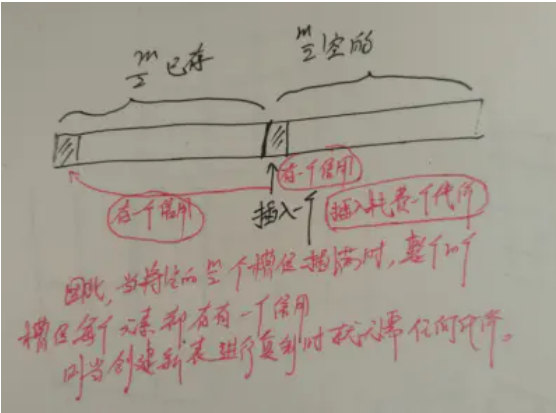 m/2 已存
m/2 空的
存一个信用
存一个信用
插入一个
插入耗费一个代价
因此,当将空的 m/2 个槽位插满时,整个m个
槽位每个元素都存有一个信用
则当创建新表进行复制时就无需任何开停。